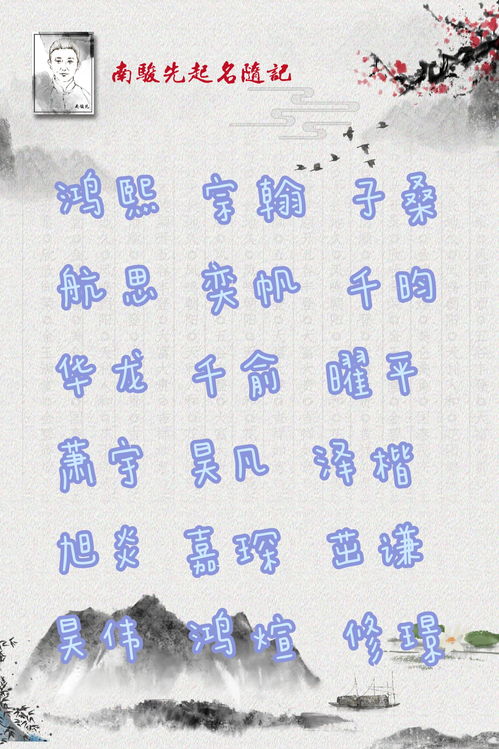 南駿先起名隨記
鸿熙 宗翰 子桑
航思 奕帆 千昀
华龙 千俞 曜平
萧宇 昊凡 泽楷
旭炎 嘉琛 茁谦
昊伟 鸿煊 修璟